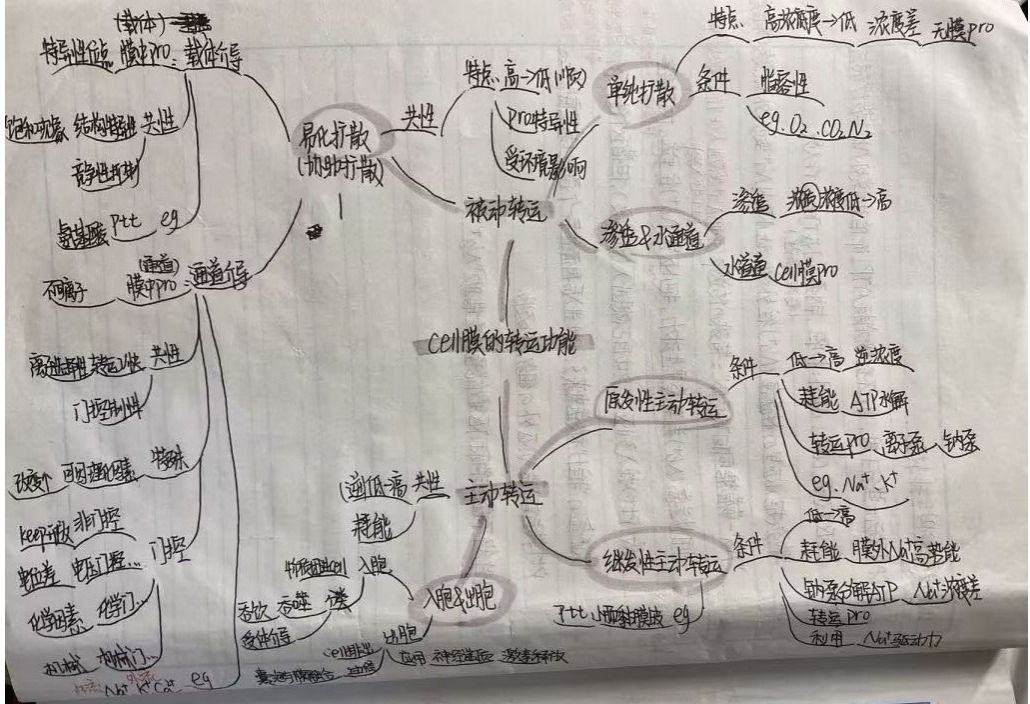 cell膜的转运功能
被动转运
单纯扩散
特点 高浓度→低 浓度差 无膜pro
条件 脂溶性
eg. O₂ . CO₂ N₂
渗透&水通道
渗透 浓度低→高
水通道 cell膜pro
易化扩散
(协助扩散)
共性
特点 高→低(顺)
pro特异性
受环境影响
(载体)
膜中pro 载体介导
饱和现象 结构特异性 共性
竞争性抑制
氨基酸 Ptt eg
(通道)
不离子 膜中pro 通道介导
共性
门控特性
特殊
keep开放 非门控
门控
电位差 电压门控...
化学因素 化学门...
机械 机械门...
Na⁺ K⁺ Ca²⁺ eg
主动转运
共性
逆低-高
耗能
原发性主动转运
条件 低→高 逆浓度
耗能 ATP水解
转运pro 离子泵 钠泵
eg. Na⁺. K⁺
继发性主动转运
条件 低→高
耗能 膜外Na⁺高势能
钠泵分解ATP Na⁺浓度差
转运pro
利用 Na⁺驱动力
eg
入胞&出胞
入胞
吞饮 吞噬
受体介导
出胞
cell排出
应用 神经递质 激素释放